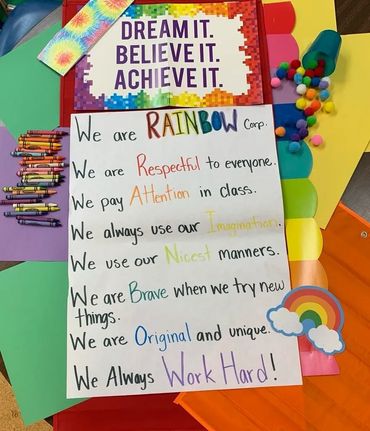 DREAM IT.
BELIEVE IT.
ACHIEVE IT.
We are RAINBOW Corp.
We are Respectful to everyone.
We pay Attention in class.
We always use our Imagination.
We use our Nicest manners.
We are Brave when we try new
things.
We are Original and unique.
We Always Work Hard!